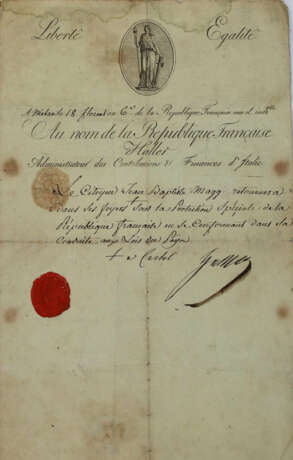 Liberté Egalité
A Milan le 18 floreal an 6.e de la Republique Française une et indi.ble
Au nom de la République Française
Haller
Administrateur des Contributions & Finances d'Italie
Le Citoyen Jean Baptiste Magg retournera
dans ses foyers sous la Protection Spéciale de la
République française en se Conformant dans sa
Conduite aux Lois du Pays